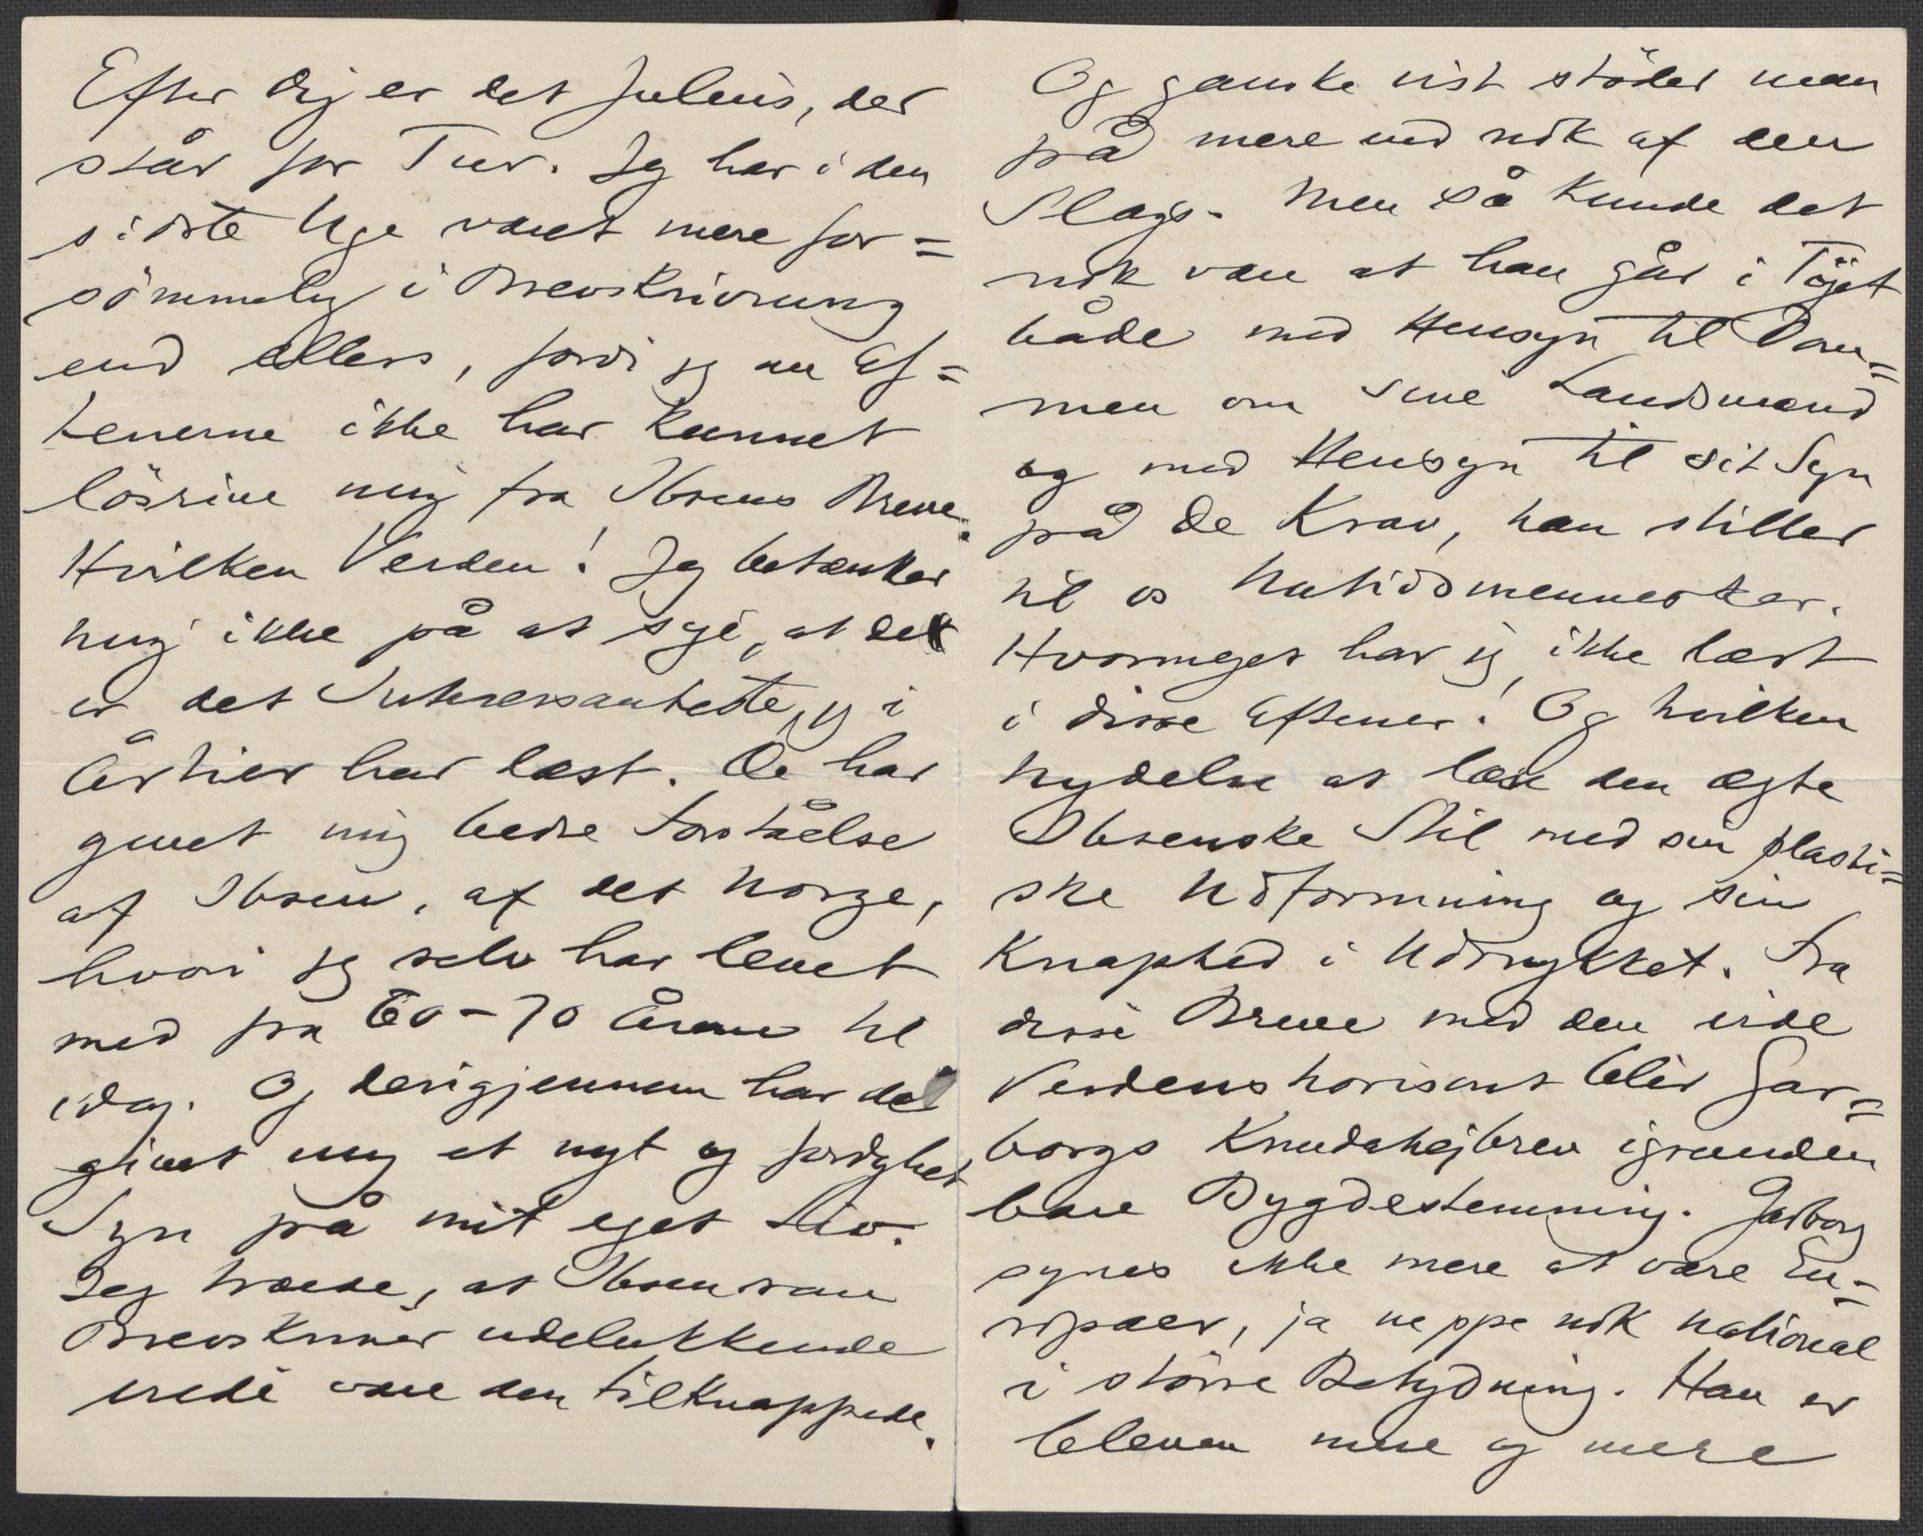 Efter dig er det Julius, der
står for Tur. Jeg har i den
sidste Uge været mere for=
sömmelig i Brevskrivning
end ellers, fordi jeg om Ef=
tenerne ikke har kunnet
lösrive mig fra Ibsens Breve.
Hvilken Verden! Jeg betænker
mig ikke på at sige, at det
er det Interessanteste, jeg i
Årtier har læst. De har
givet mig bedre Forståelse
af Ibsen, af det Norge,
hvori jeg selv har levet
med fra 60-70 Årene til
idag. Og derigjennem har det
givet mig et nyt og fordybet
Syn på mit eget Liv.
Jeg troede, at Ibsen som
Brevskriver udelukkende
vilde være den tilknappede.
Og ganske vist stöder man
på mere end nok af den
Slags. Men så kunde det
nok være at han går i Töjet
både med Hensyn til Dom=
men om sine Landsmænd
og med Hensyn til sit Syn
på de Krav, han stiller
til os Nutidsmennesker.
Hvormeget har jeg ikke lært
i disse Aftener! Og hvilken
Nydelse at læse den ægte
Ibsenske Stil med sin plasti=
ske Udformning og sin
Knaphed i Udtrykket. Fra
disse Breve med den vide
Verdenshorisont blir Gar=
borgs Knudahejbrev igrunden
bare Bygdestemning. Garborg
synes ikke mere at være Eu=
ropæer, ja neppe nok national
i större Betydning. Han er
bleven mere og mere